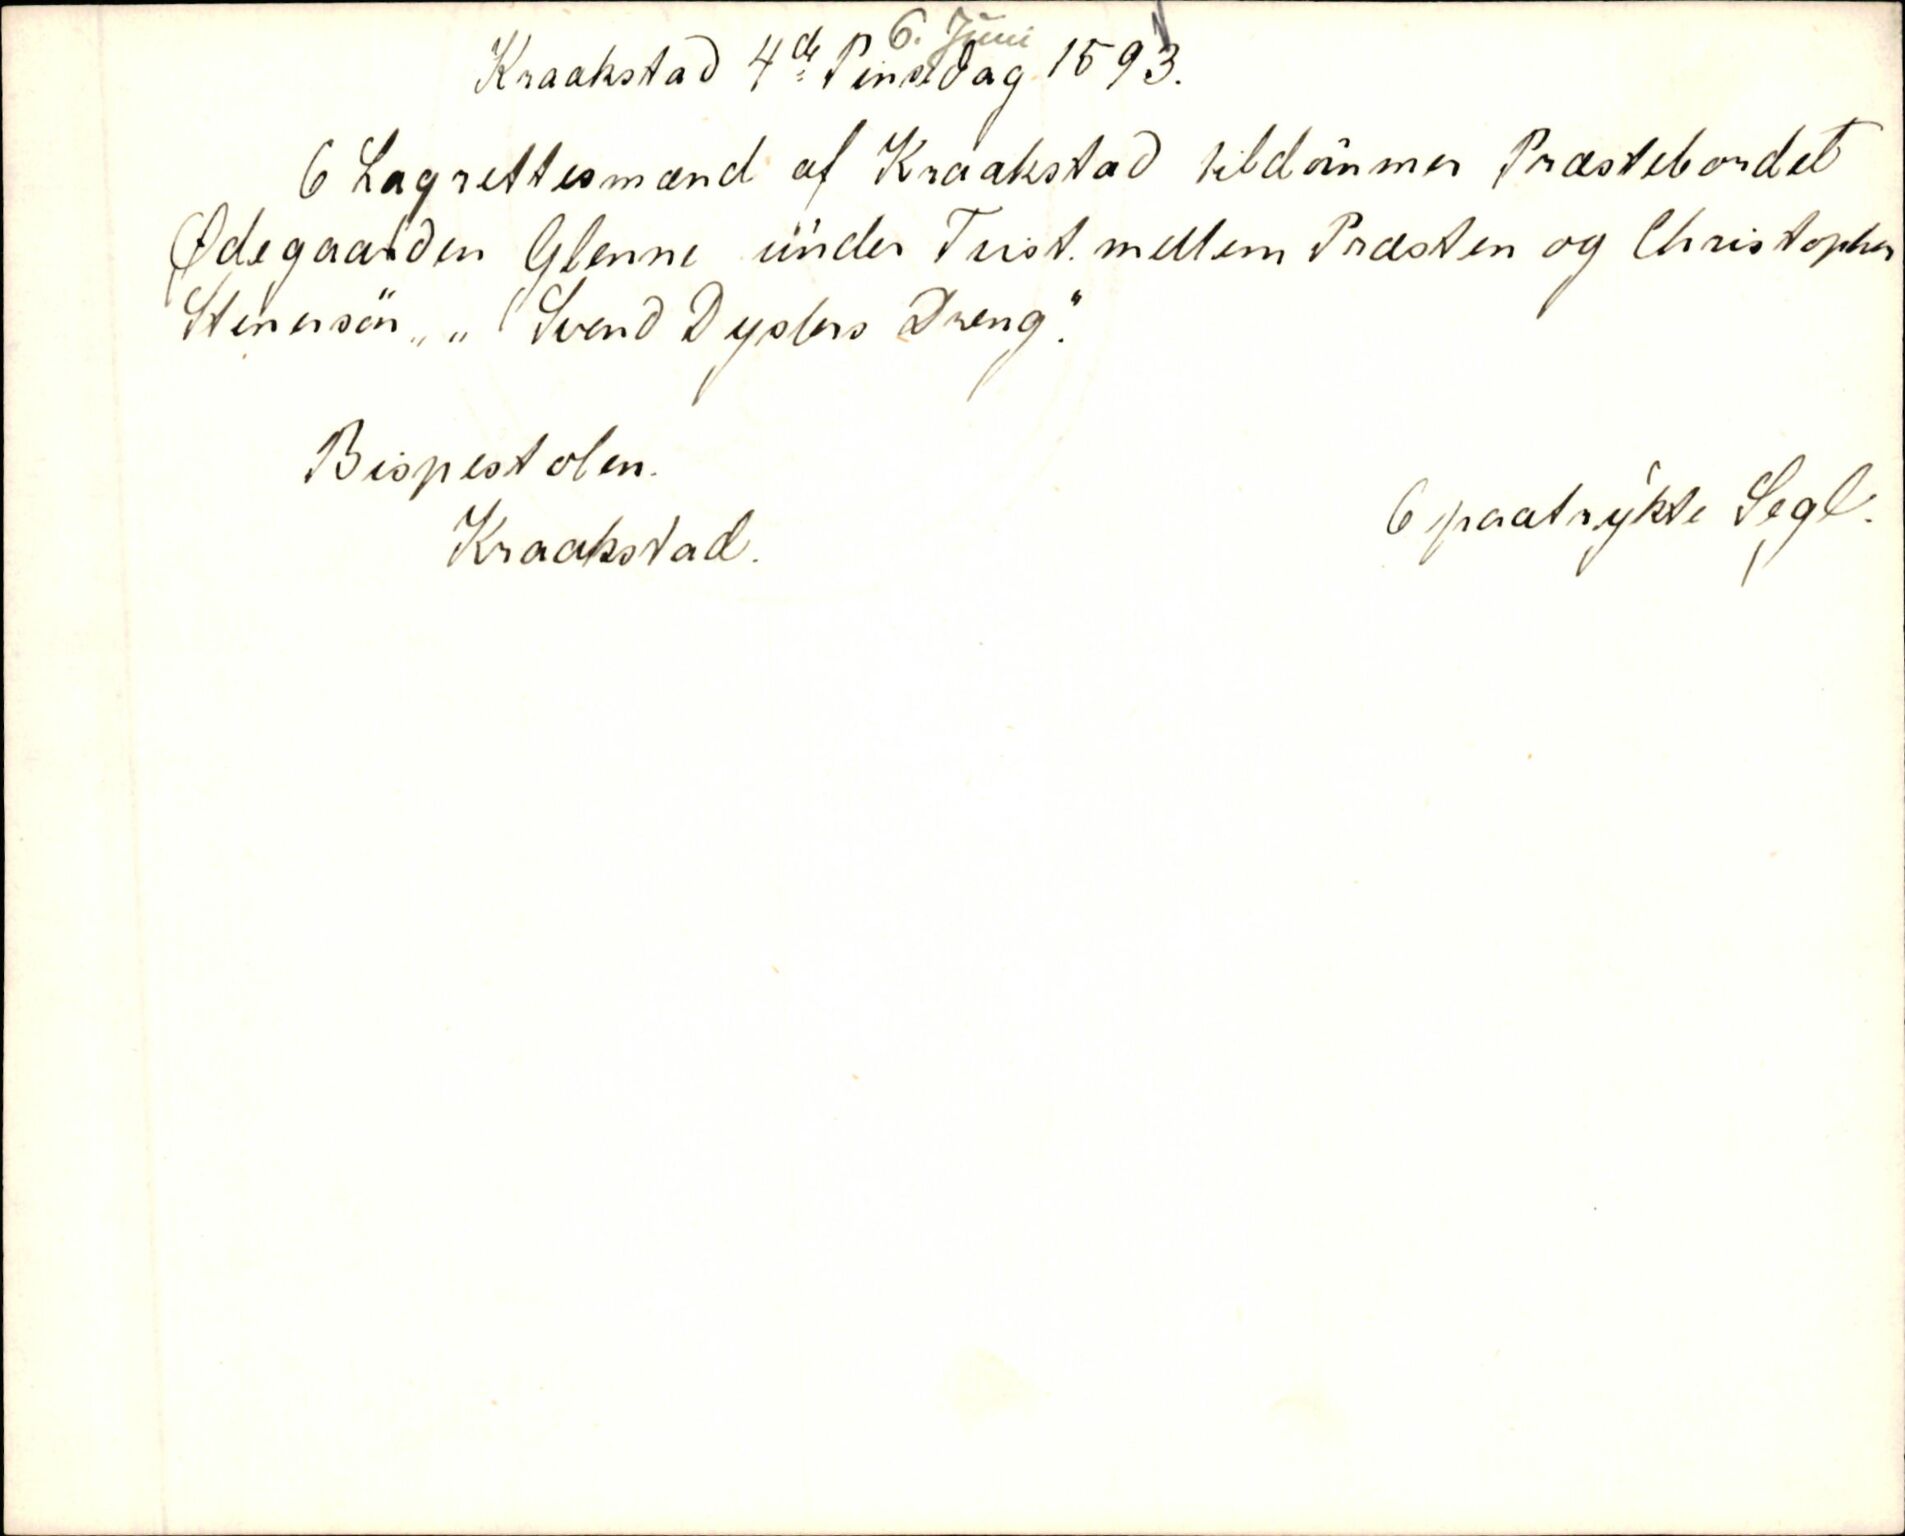 6. Juni
Kraakstad 4de Pinsedag 1593.
6 Lagrettesmænd af Kraakstad tildömmer Præstebordet
Ødegaarden Glenne under Tvist. mellem Præsten og Christopher
Stenersön, „Svend Dysters Dreng".
Bispestolen.
6 paatrykte Segl.
Kraakstad.